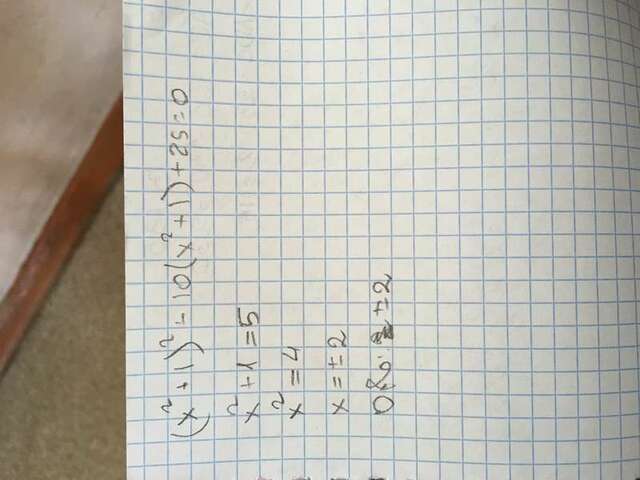 (x² + 1)² - 10(x² + 1) + 25 = 0
x² + 1 = 5
x² = 4
x = ± 2
Отв: ± 2